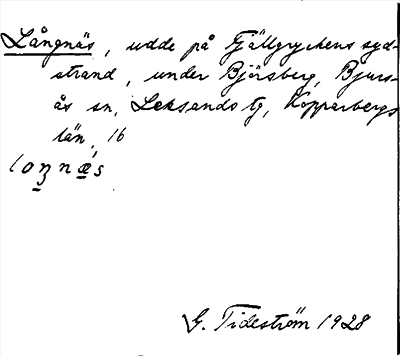 Långnäs, udde på Fjällgryckens syd-
strand, under Björsberg, Bjurs-
ås sn, Leksands tg, Kopparbergs
län, 16
loŋnǽs
G. Tideström 1928